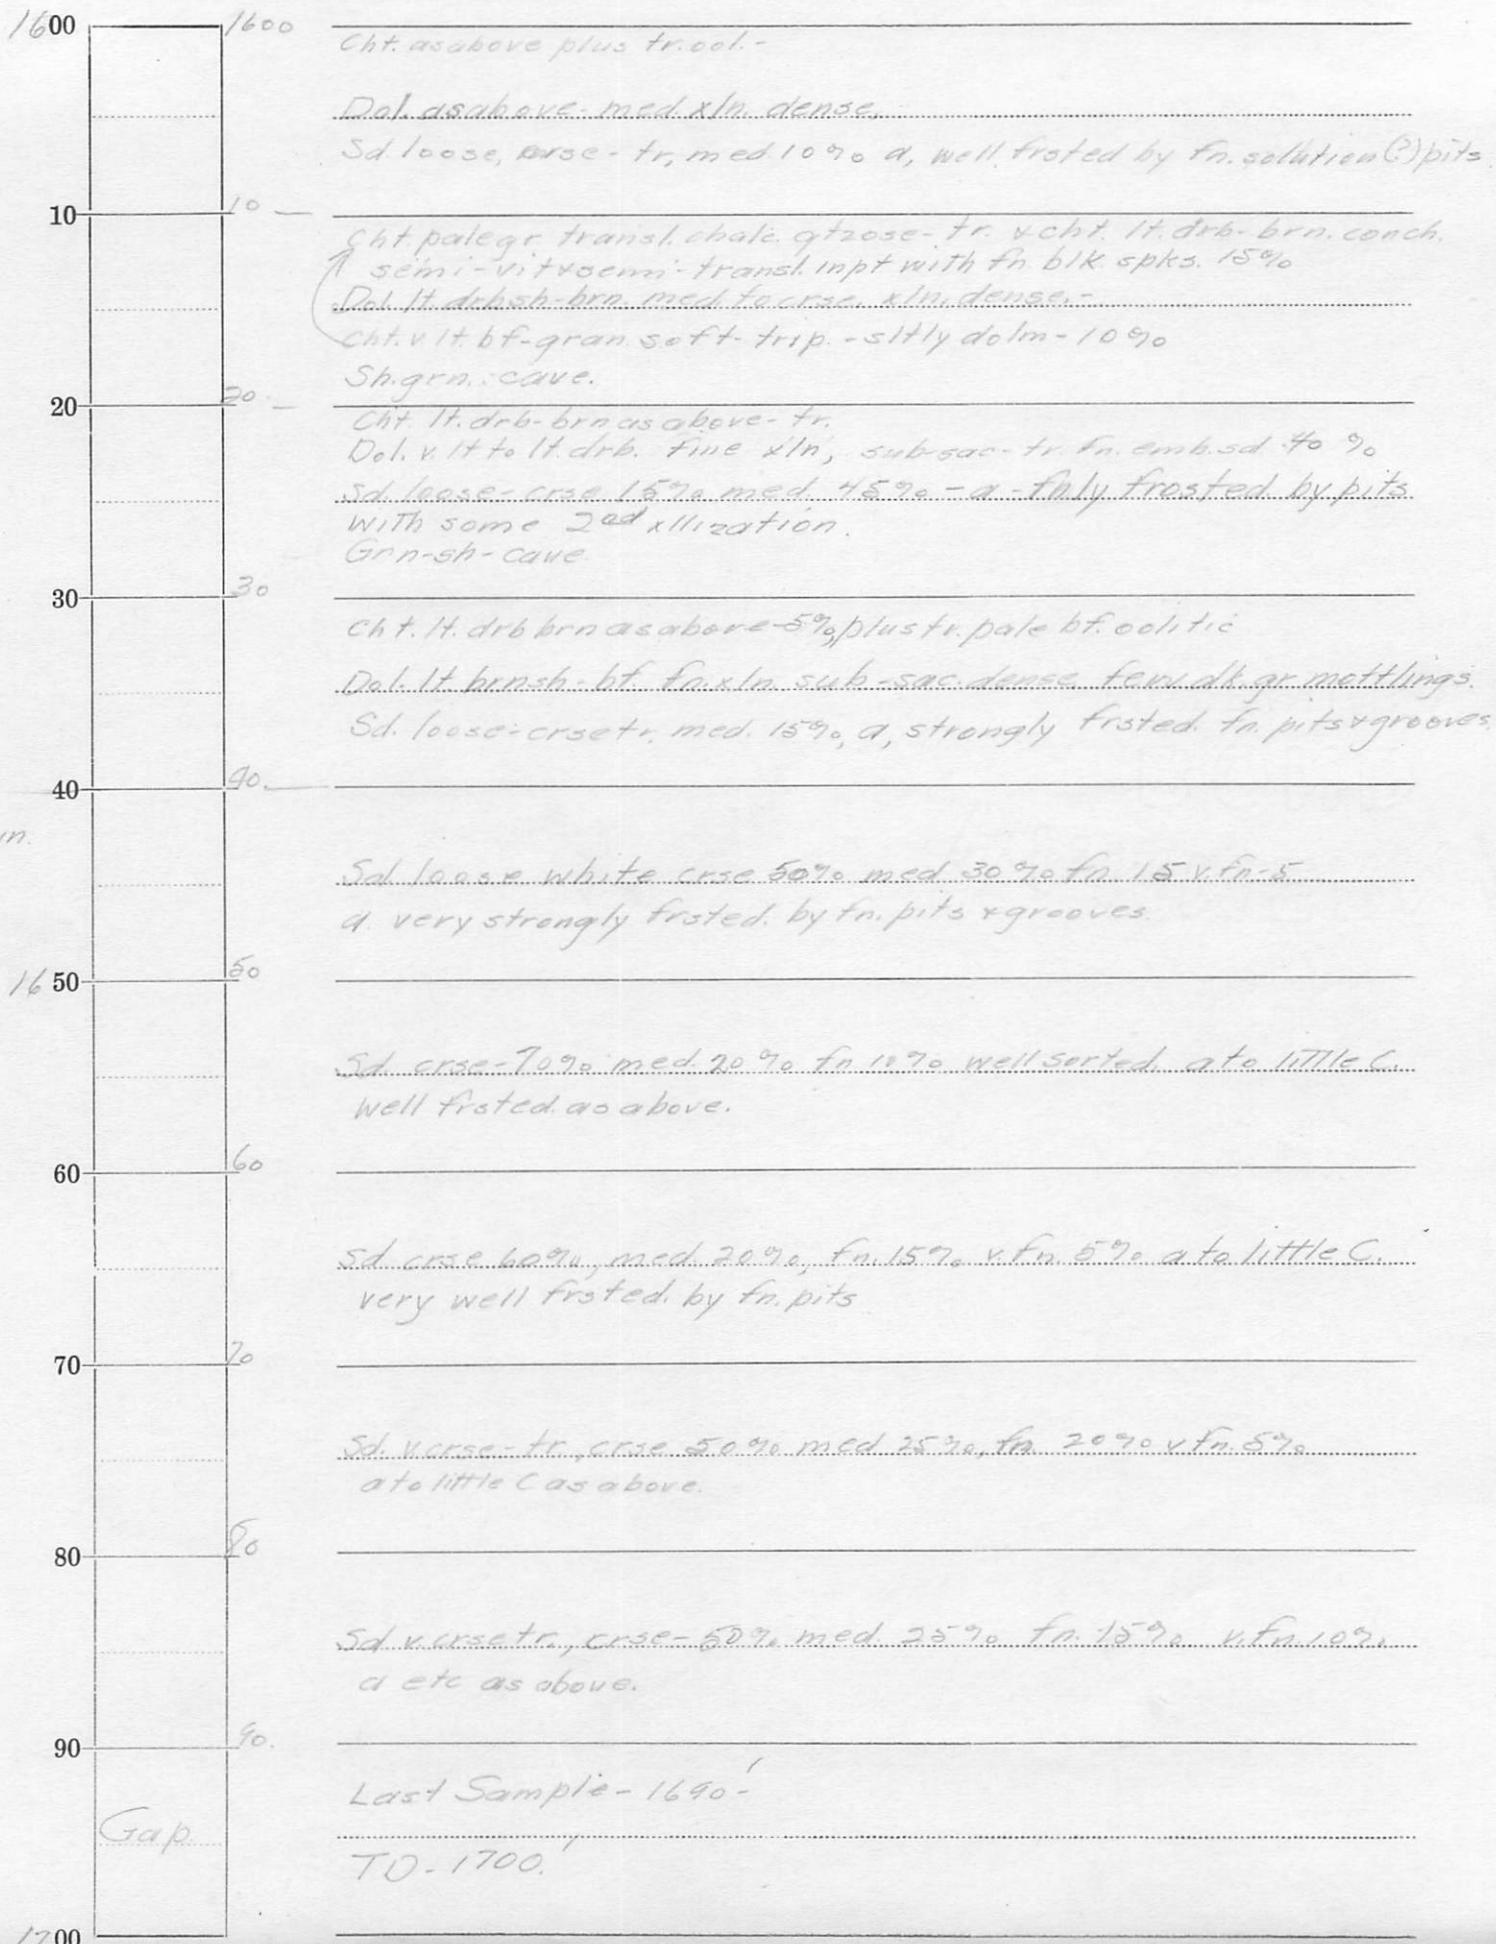 1600 1600
Cht. as above plus tr. ool.-
Dol. as above- med. xln. dense.
Sd. loose, crse- tr, med. 10% a, well frsted by fn. solution (?) pits
10 10
Cht. pale gr. transl. chalc. qtzose- tr. & cht. lt. drb- brn. conch.
semi-vit & semi-transl. in pt with fn blk spks. 15%
Dol. lt. drbsh-brn. med. to crse. xln. dense.-
Cht. v. lt. bf-gran. soft- trip. - sltly dolm- 10%
Sh. grn.: cave.
20 20
Cht. lt. drb-brn as above- tr.
Dol. v. lt to lt. drb. fine xln, sub-sac- tr. fn. emb. sd 40%
Sd. loose- crse 15% med. 45% - a - fnly frosted by pits
with some 2nd xllization.
Grn-sh-cave
30 30
Cht. lt. drb brn as above-5%, plus tr. pale bf. oolitic
Dol. lt brnsh- bf. fn. xln. sub-sac. dense few dk. gr. mottlings.
Sd. loose- crse tr. med. 15%, a, strongly frsted. fn. pits & grooves.
40 40
in.
Sd loose white crse 50% med 30% fn 15 v. fn-5
a very strongly frsted. by fn. pits & grooves.
1650 50
Sd. crse-70% med. 20% fn 10% well sorted. a to little C.
well frsted. as above.
60 60
Sd. crse 60%, med. 20%, fn. 15% v. fn. 5% a to little C.
very well frsted. by fn. pits
70 70
Sd. v. crse- tr., crse 50% med 25%, fn 20% v fn. 5%
a to little C as above.
80 80
Sd v. crse tr., crse- 50% med. 25% fn. 15% v. fn. 10%.
a etc as above.
90 90.
Last Sample- 1690'-
Gap
TD- 1700.'
1700